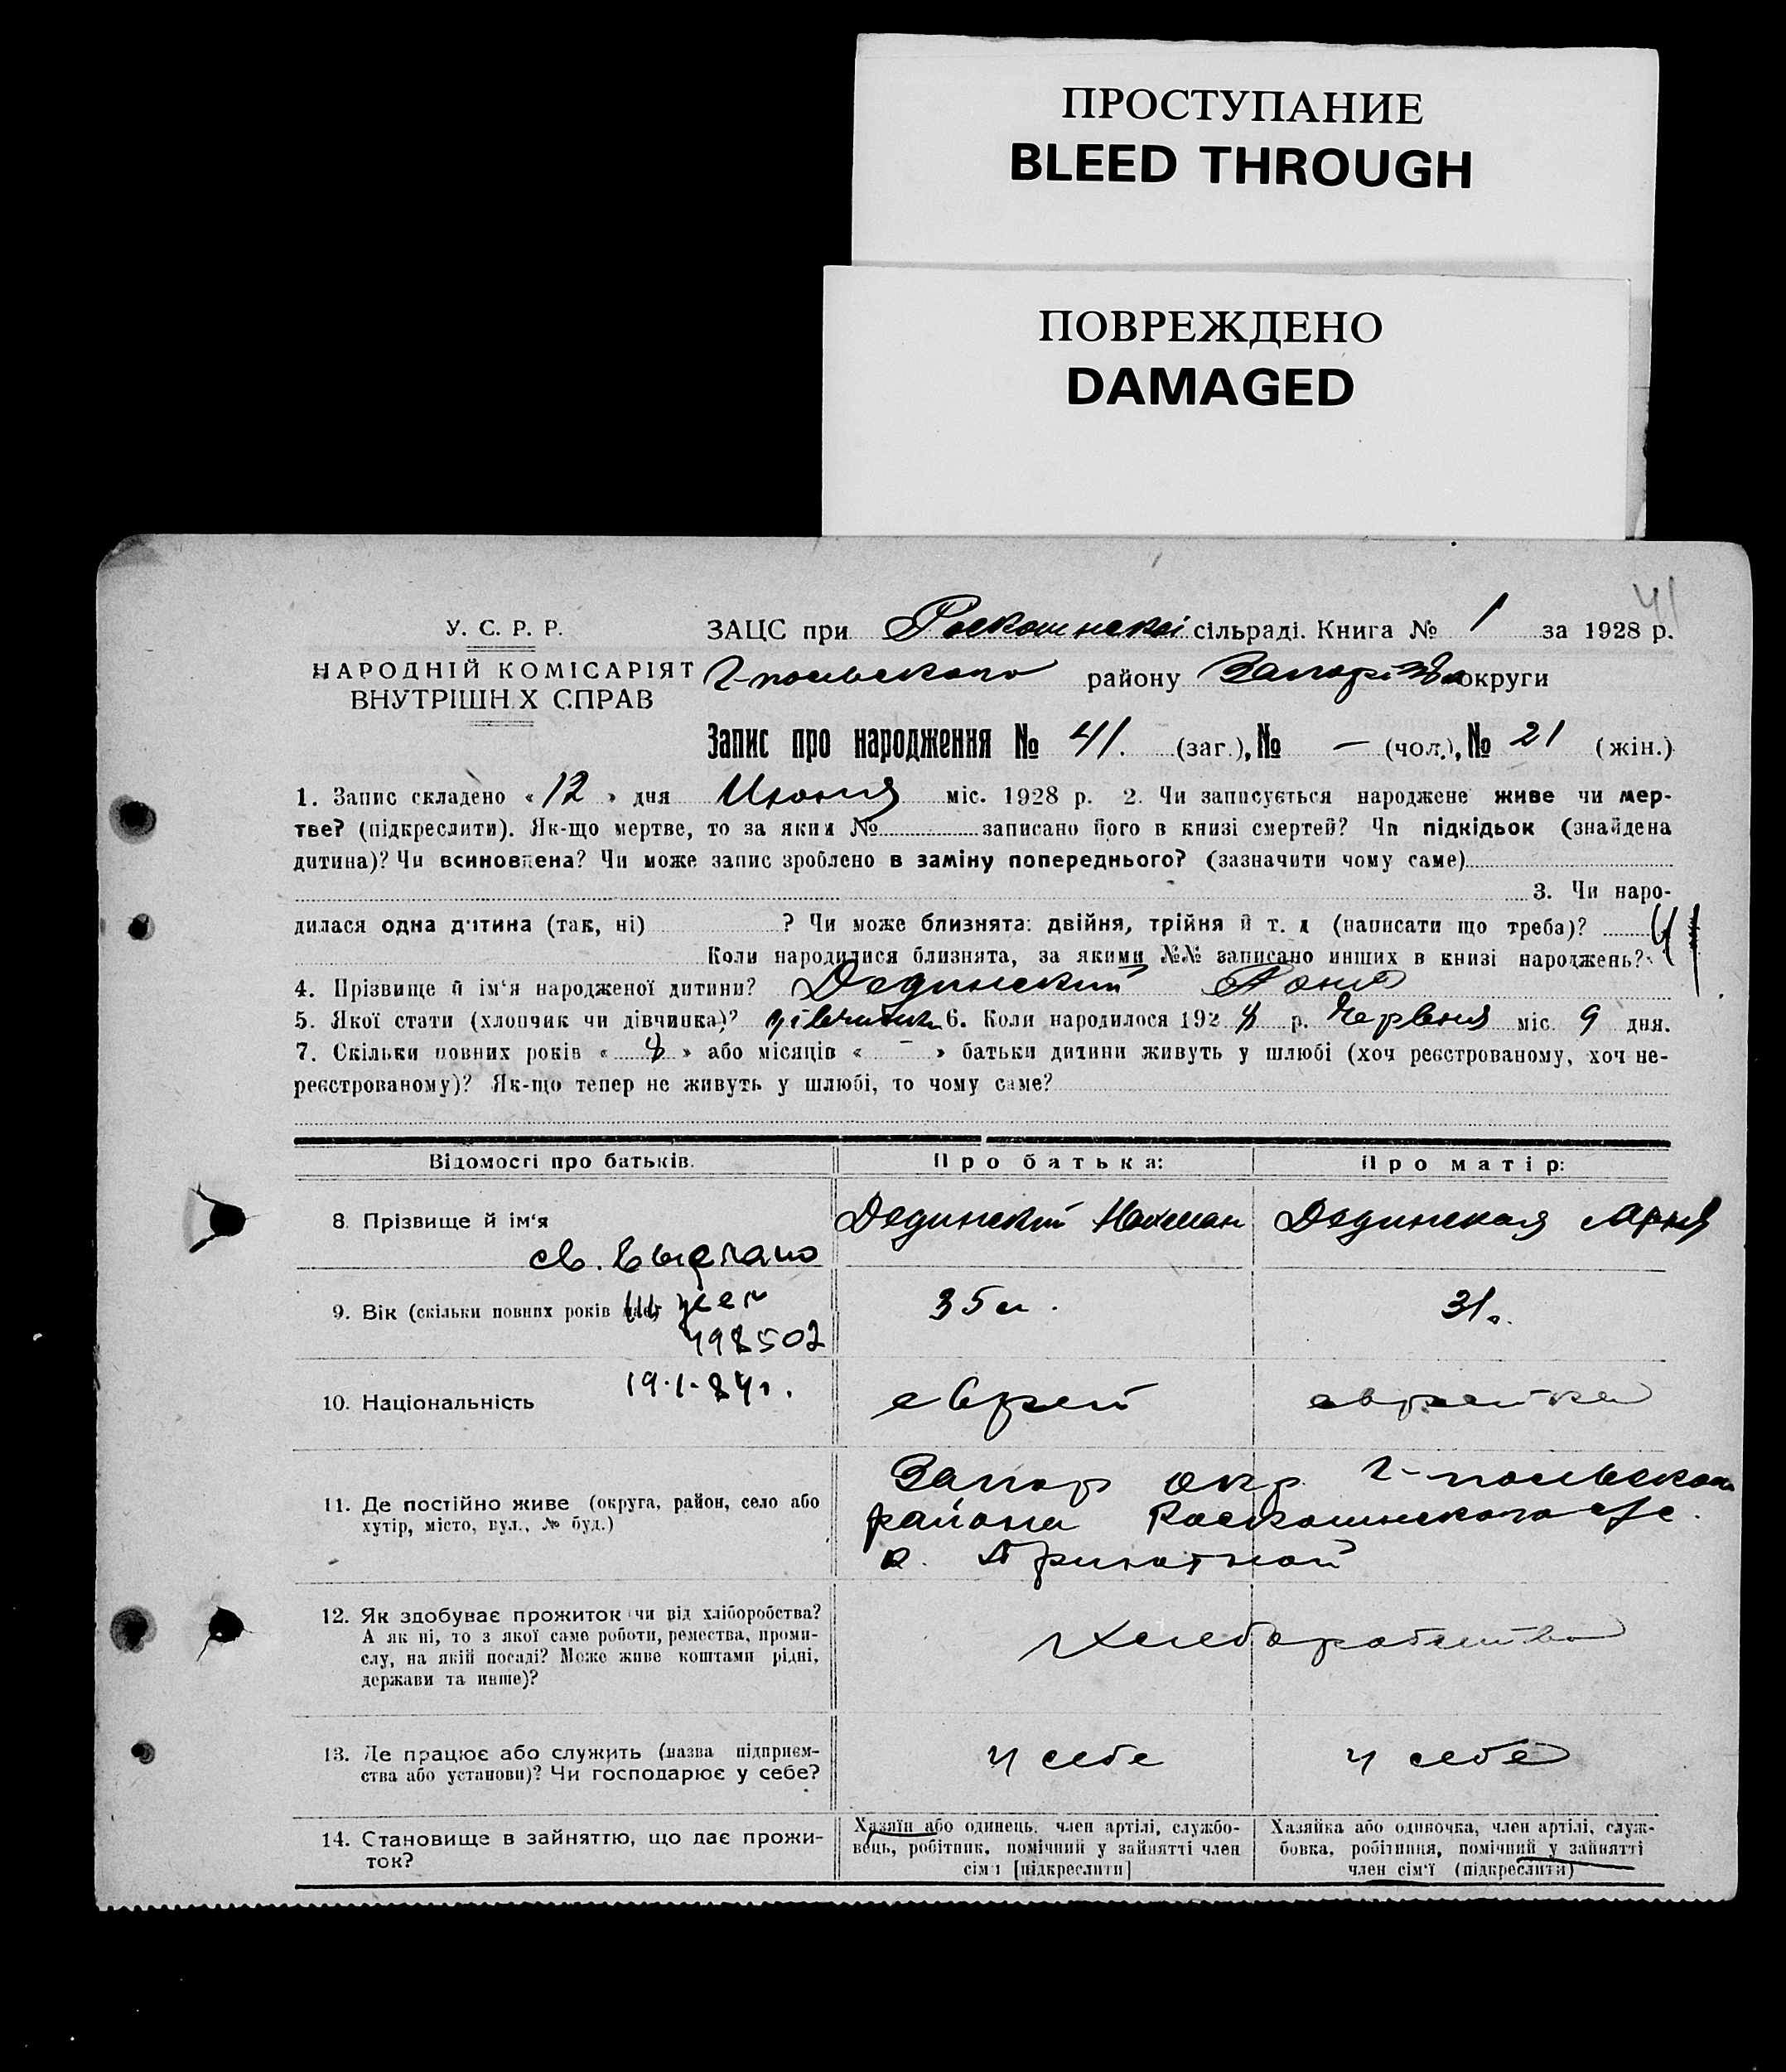 ПРОСТУПАНИЕ
BLEED THROUGH
ПОВРЕЖДЕНО
DAMAGED
41
У. С. Р. Р.
НАРОДНІЙ КОМІСАРІЯТ
ВНУТРІШН.Х СПРАВ
ЗАЦС при Роскошнской сільраді. Книга № 1 за 1928 р.
Г-польского району Запоріз округи
Запис про народження № 41. (заг.), № — (чол.), № 21 (жін.)
1. Запис складено «12» дня Июня міс. 1928 р. 2. Чи записується народжене живе чи мер-
тве? (підкреслити). Як-що мертве, то за яким № записано його в книзі смертей? Чи підкідьок (знайдена
дитина)? Чи всиновлена? Чи може запис зроблено в заміну попереднього? (зазначити чому саме)
3. Чи наро-
дилася одна дитина (так, ні) ? Чи може близнята: двійня, трійня й т. д (написати що треба)?
Коли народилися близнята, за якими №№ записано инших в книзі народжень?
4. Прізвище й ім'я народженої дитини? Дединский
5. Якої стати (хлопчик чи дівчинка)? дівчинка 6. Коли народилося 1928 р. Червня міс. 9 дня.
7. Скільки повних років « 8 » або місяців « - » батьки дитини живуть у шлюбі (хоч реєстрованому, хоч не-
реєстрованому)? Як-що тепер не живуть у шлюбі, то чому саме?
Відомості про батьків.
Про батька:
Про матір:
8. Прізвище й ім'я
Дединский Нахман
Дединская Мария
св. выдано
9. Вік (скільки повних років має)
35 л.
31 г.
498502
19.1.84г.
10. Національність
еврей
еврейка
11. Де постійно живе (округа, район, село або
хутір, місто, вул., № буд.)
Запор окр. Г-польского
района Роскошнского с/с.
к. Приютной
12. Як здобуває прожиток чи від хліборобства?
А як ні, то з якої саме роботи, ремества, проми-
слу, на якій посаді? Може живе коштами рідні,
держави та инше)?
Хлеборобство
13. Де працює або служить (назва підприєм-
ства або установи)? Чи господарює у себе?
у себе
у себе
14. Становище в зайняттю, що дає прожи-
ток?
Хазяїн або одинець, член артілі, службо-
вець, робітник, помічний у зайнятті член
сім'ї [підкреслити]
Хазяйка або одиночка, член артілі, служ-
бовка, робітниця, помічний у зайнятті
член сім'ї (підкреслити)